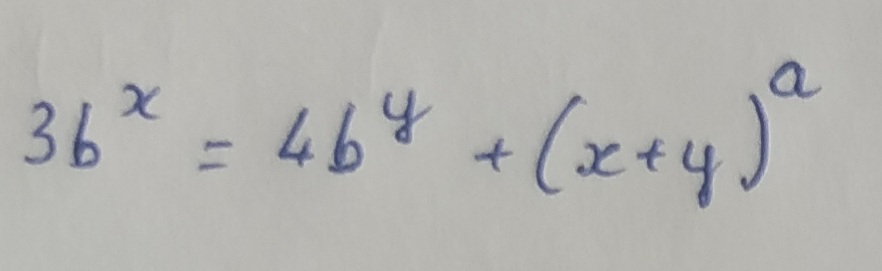 3b^x = 4b^y + (x+y)^a